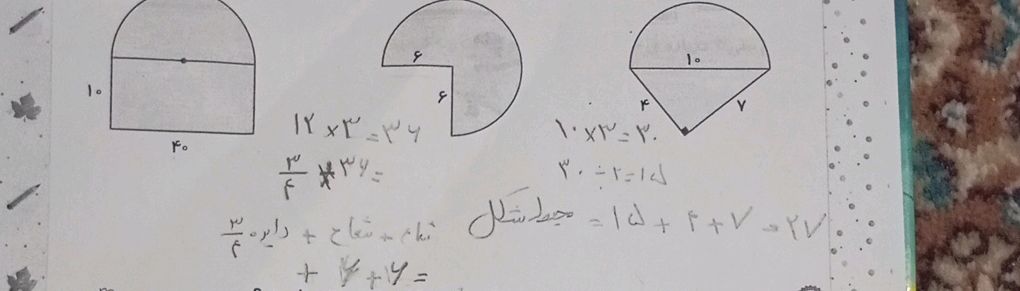 ۱۰
۴۰
۶
۶
۱۰
۴
۷
۱۲ × ۳ = ۳۶
۳/۴ × ۳۶ =
۱۰ × ۳ = ۳۰
۳۰ ÷ ۲ = ۱۵
محیط شکل = ۱۵ + ۴ + ۷ = ۲۷
۳/۴ دایره + شعاع + شعاع
+ ۶ + ۶ =